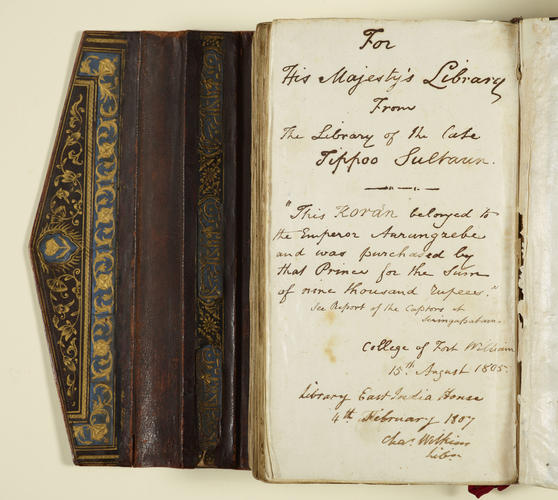 For
His Majesty's Library
From
The Library of the late
Tippoo Sultaun.
"This Korân belonged to
the Emperor Aurungzebe
and was purchased by
that Prince for the Sum
of nine thousand rupees."
See Report of the Captors at
Seringapatam.
College of Fort William
15th August 1805.
Library East India House
4th February 1807
Chas. Wilkins
Libn.